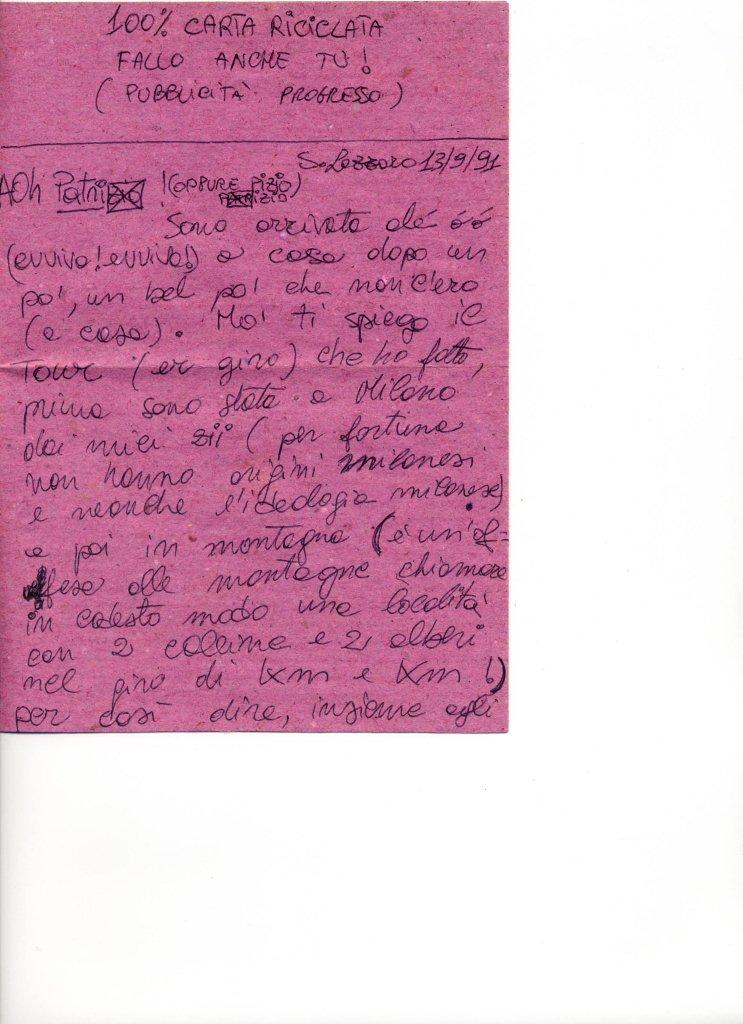 100% CARTA RICICLATA
FALLO ANCHE TU!
(PUBBLICITÀ PROGRESSO)
S. Lazzaro 13/9/91
AOh Patrizia! (OPPURE Pizia)
Sono arrivata olé é é
(evviva! evviva!) a casa dopo un
po', un bel po' che non c'ero
(a casa). Mo' ti spiego il
Tour (er giro) che ho fatto,
prima sono stata a Milano
dai miei zii (per fortuna
non hanno origini milanesi
e neanche l'ideologia milanese)
e poi in montagna (è un'of=
fesa alle montagne chiamare
in codesto modo una località
con 2 colline e 2 alberi
nel giro di km e km!)
per così dire, insieme agli